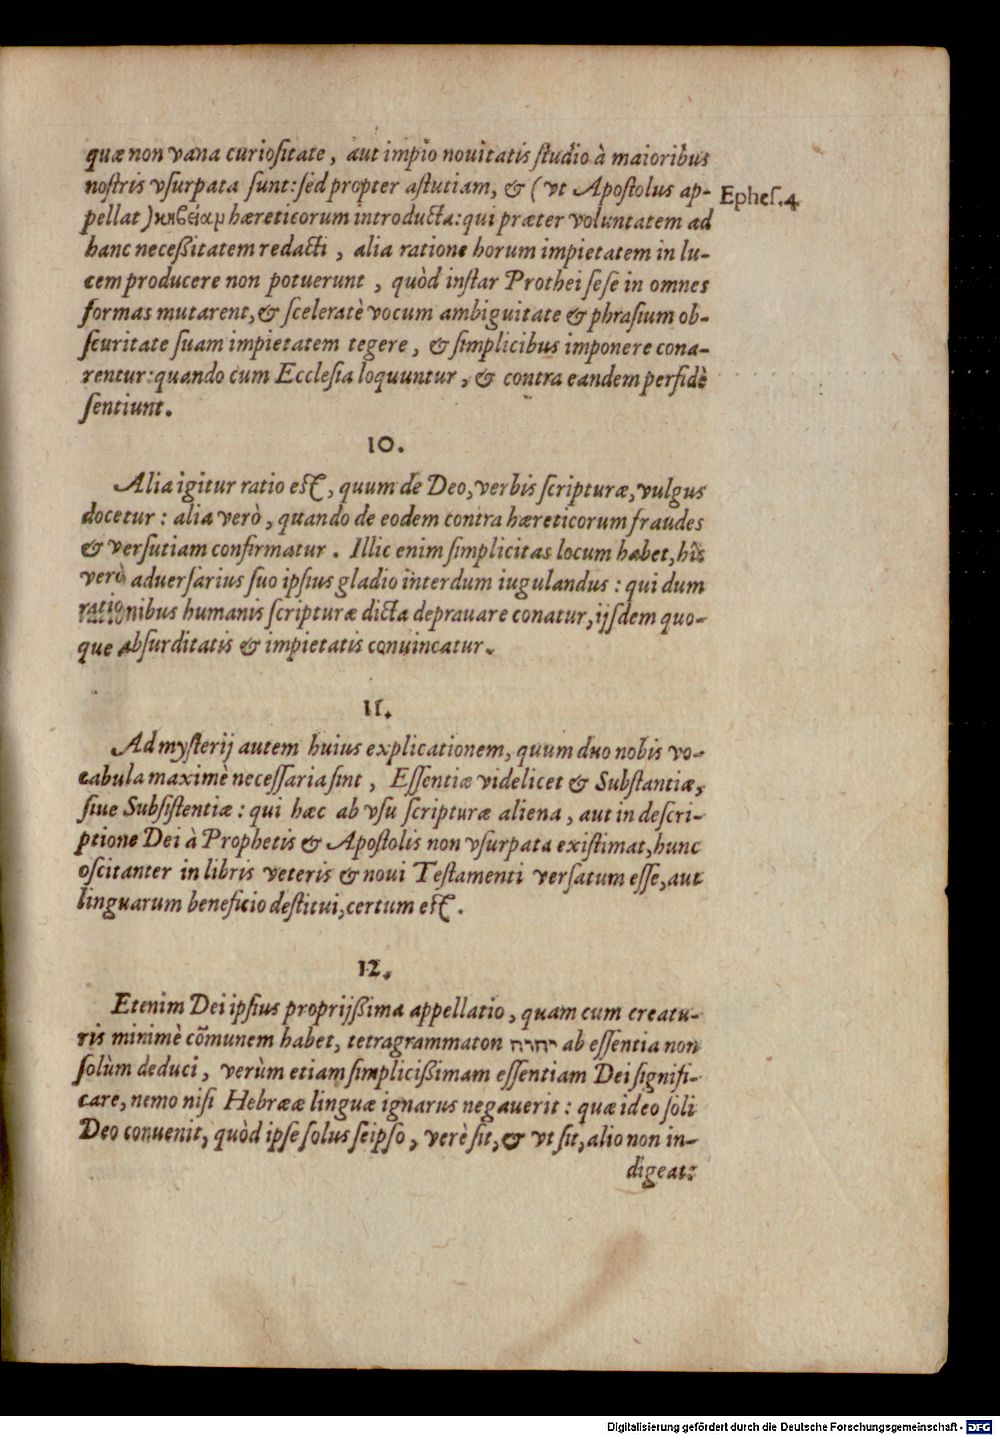 quæ non vana curiositate, aut impio nouitatis studio à maioribus
nostris vsurpata sunt: sed propter astutiam, & (vt Apostolus ap-
pellat) κυβείαμ hæreticorum introducta: qui præter voluntatem ad
Ephes. 4
hanc neceßitatem redacti, alia ratione horum impietatem in lu-
cem producere non potuerunt, quòd instar Prothei sese in omnes
formas mutarent, & sceleratè vocum ambiguitate & phrasium ob-
scuritate suam impietatem tegere, & simplicibus imponere cona-
rentur: quando cum Ecclesia loquuntur, & contra eandem perfidè
sentiunt.
10.
Alia igitur ratio est, quum de Deo, verbis scripturæ, vulgus
docetur: alia verò, quando de eodem contra hæreticorum fraudes
& versutiam confirmatur. Illic enim simplicitas locum habet, hîc
verò aduersarius suo ipsius gladio interdum iugulandus: qui dum
rationibus humanis scripturæ dicta deprauare conatur, ijsdem quo-
que absurditatis & impietatis conuincatur.
11.
Ad mysterij autem huius explicationem, quum duo nobis vo-
cabula maximè necessaria sint, Essentiæ videlicet & Substantiæ,
siue Subsistentiæ: qui hæc ab vsu scripturæ aliena, aut in descri-
ptione Dei à Prophetis & Apostolis non vsurpata existimat, hunc
oscitanter in libris veteris & noui Testamenti versatum esse, aut
linguarum beneficio destitui, certum est.
12.
Etenim Dei ipsius proprijßima appellatio, quam cum creatu-
ris minimè cõmunem habet, tetragrammaton יהוה ab essentia non
solùm deduci, verùm etiam simplicißimam essentiam Dei signifi-
care, nemo nisi Hebrææ linguæ ignarus negauerit: quæ ideo soli
Deo conuenit, quòd ipse solus seipso, verè sit, & vt sit, alio non in-
digeat:
Digitalisierung gefördert durch die Deutsche Forschungsgemeinschaft - DFG